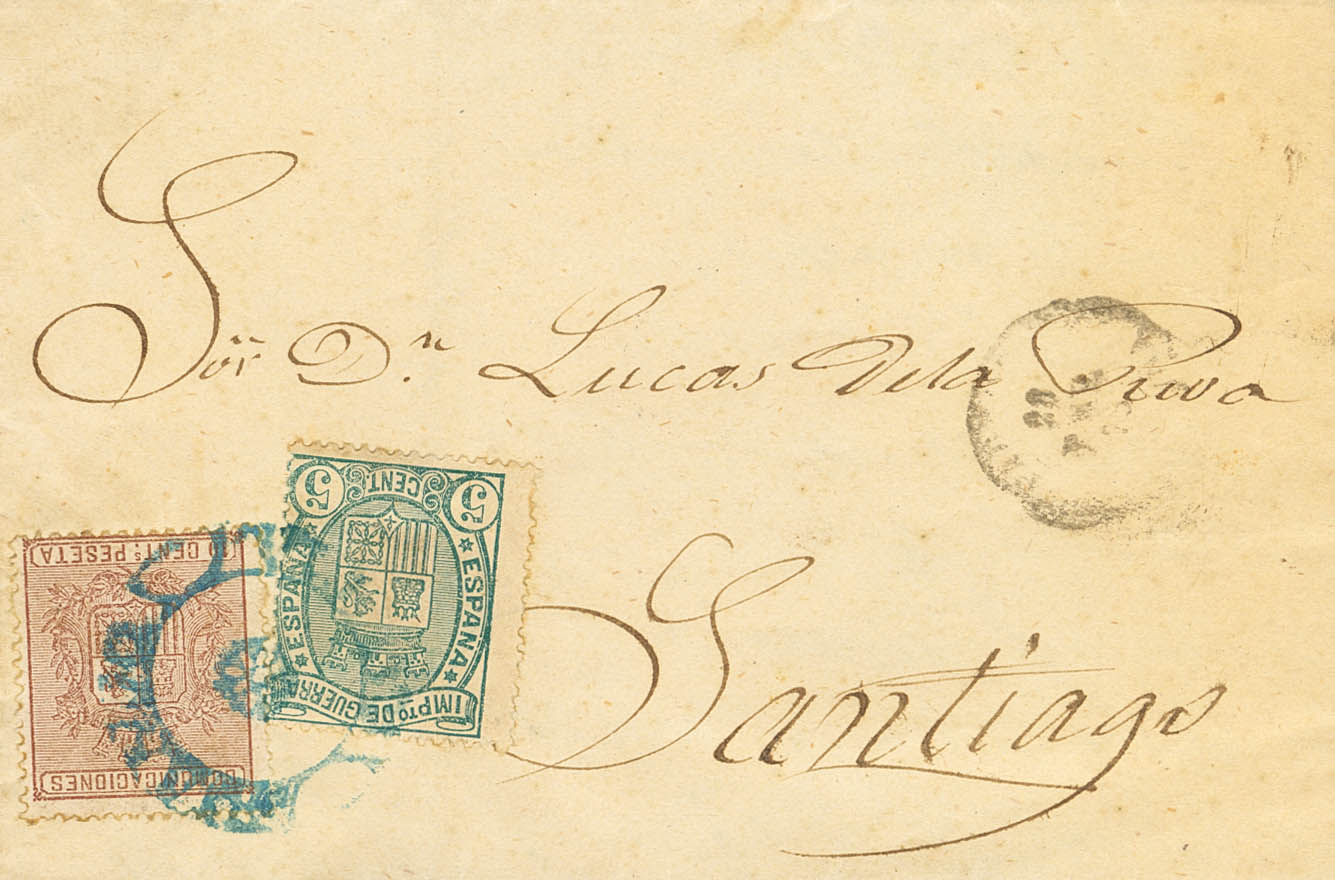 Sör Dⁿ. Lucas Dela Riva
Santiago
5 CENT. 5
ESPAÑA ESPAÑA
IMPto DE GUERRA
10 CENTs PESETA
COMUNICACIONES